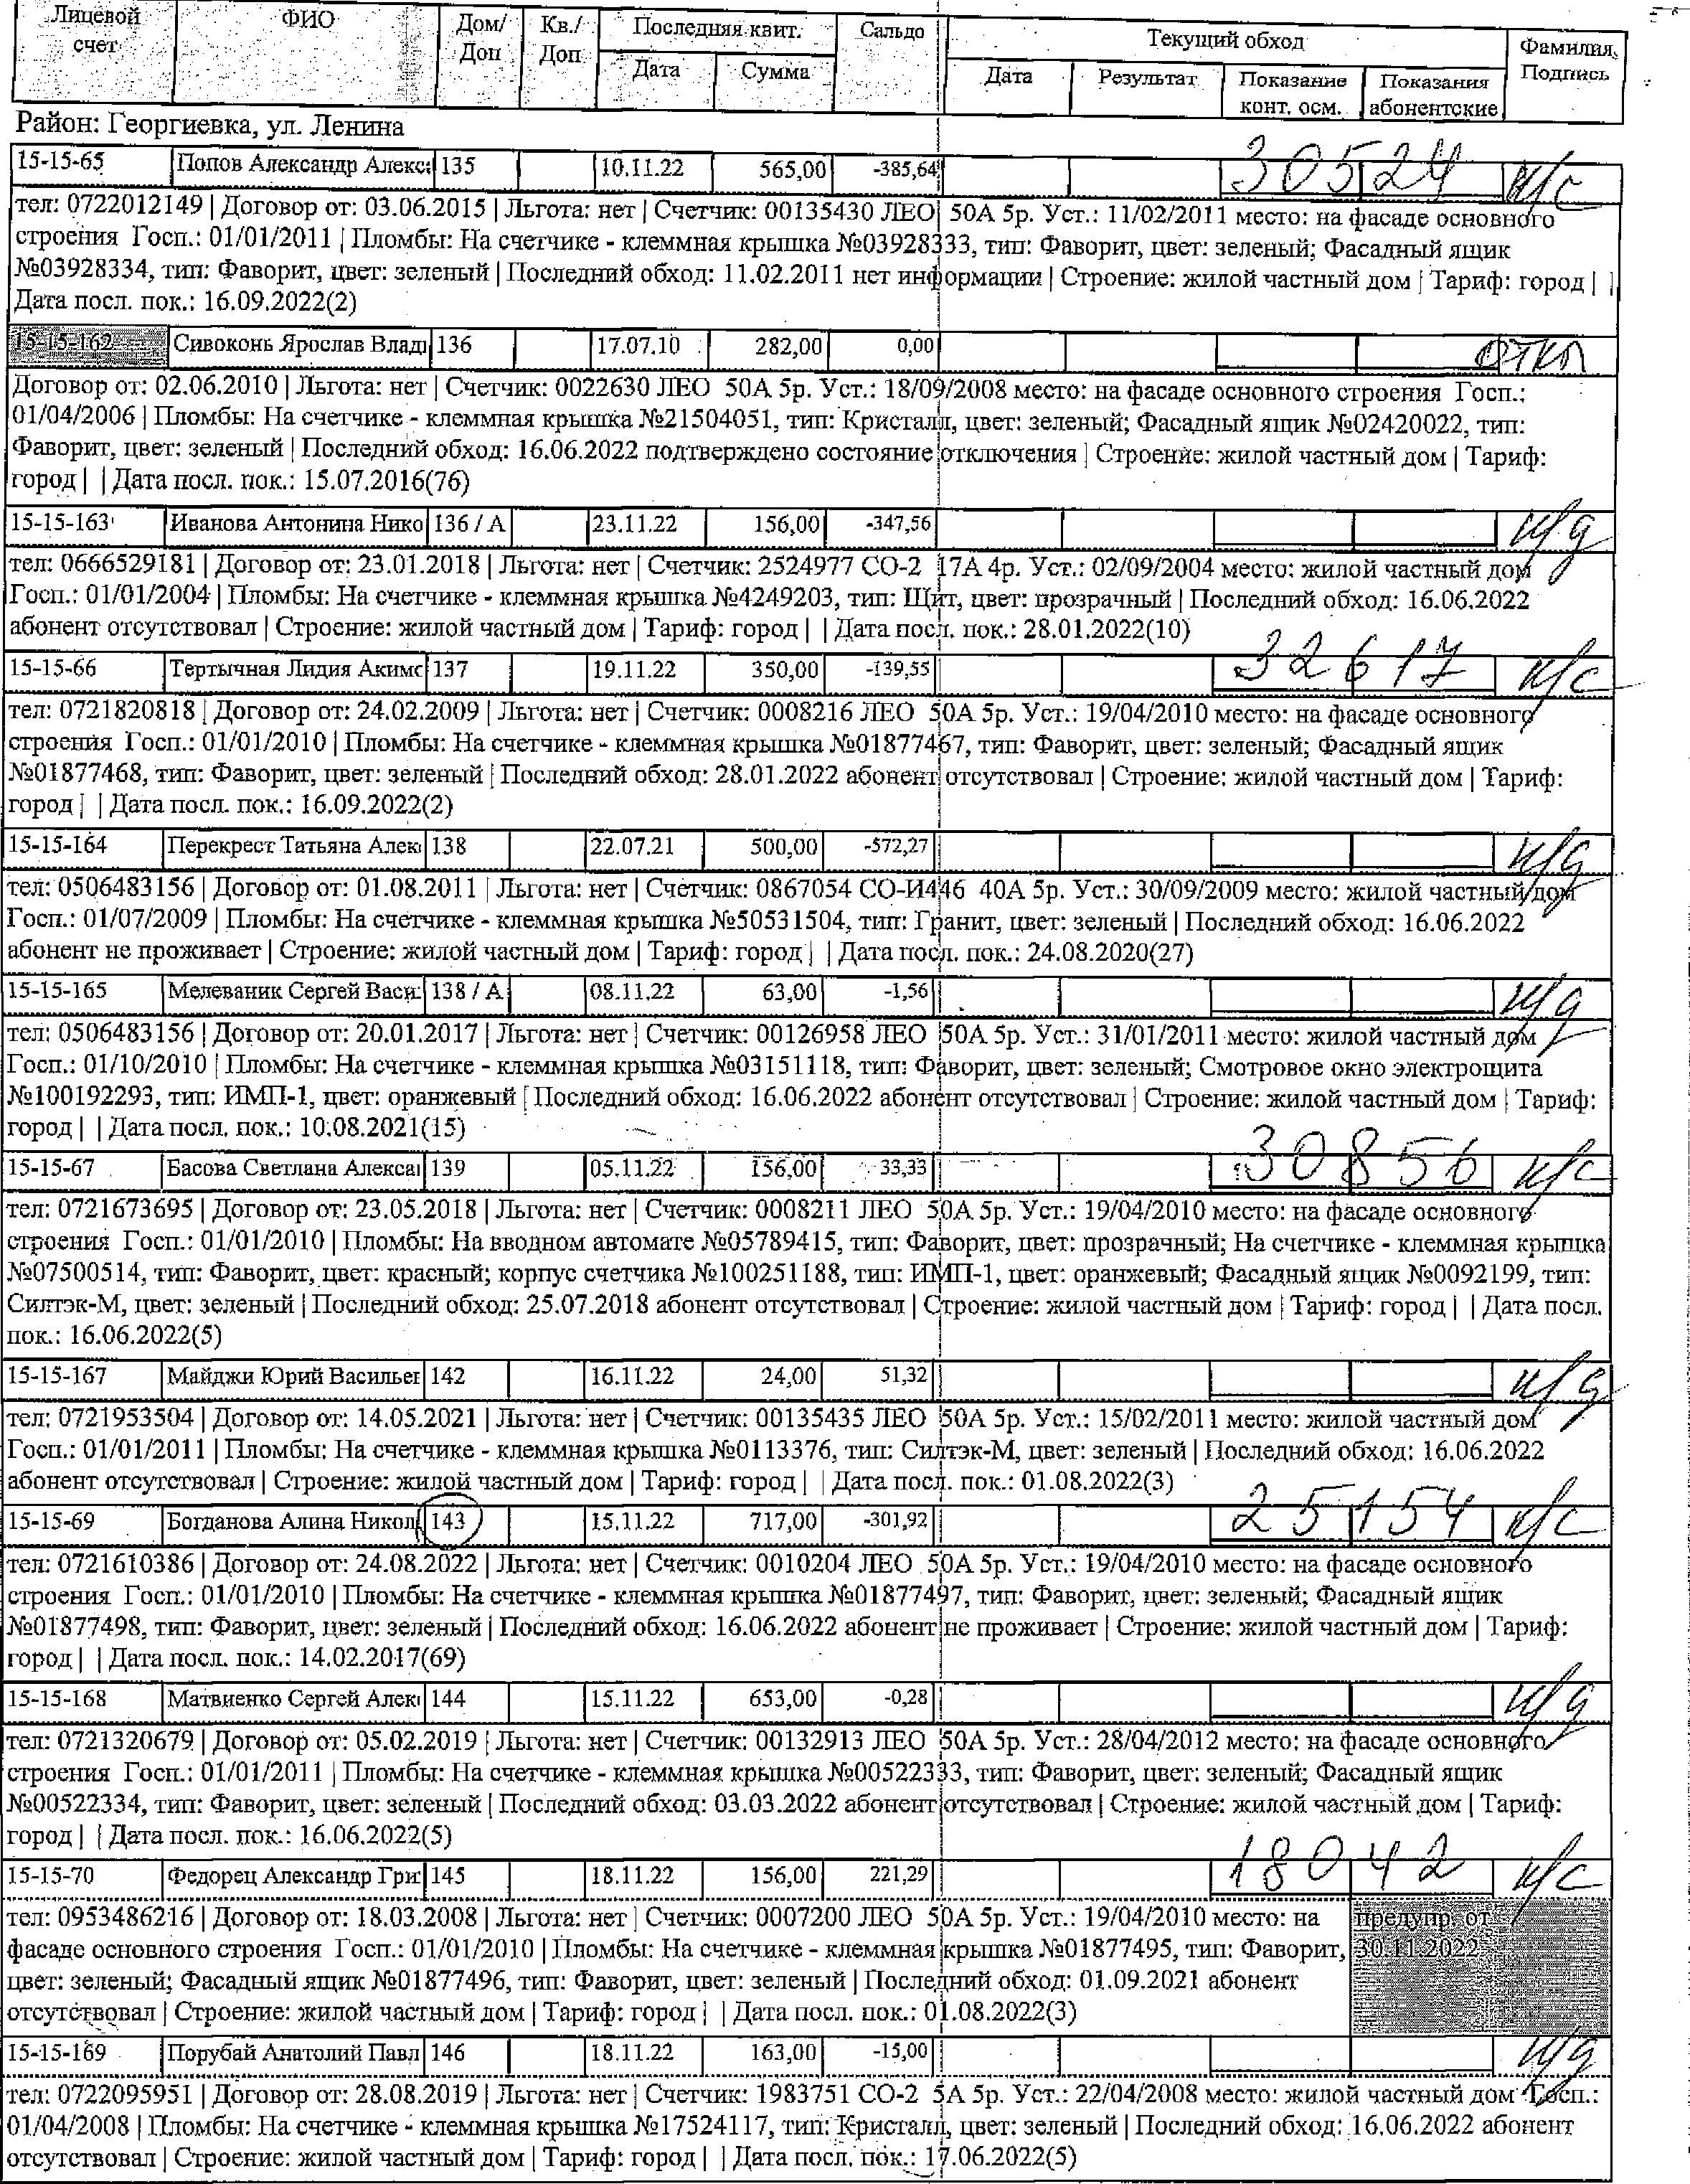 Лицевой счет ФИО Дом/ Доп Кв./ Доп Последняя квит. Дата Сумма Сальдо Текущий обход Дата Результат Показание конт. осм. Показания абонентские Фамилия, Подпись
Район: Георгиевка, ул. Ленина
15-15-65 Попов Александр Алекса 135 10.11.22 565,00 -385,64 30524 н/с
тел: 0722012149 | Договор от: 03.06.2015 | Льгота: нет | Счетчик: 00135430 ЛЕО 50А 5р. Уст.: 11/02/2011 место: на фасаде основного
строения Госп.: 01/01/2011 | Пломбы: На счетчике - клеммная крышка №03928333, тип: Фаворит, цвет: зеленый; Фасадный ящик
№03928334, тип: Фаворит, цвет: зеленый | Последний обход: 11.02.2011 нет информации | Строение: жилой частный дом | Тариф: город | |
Дата посл. пок.: 16.09.2022(2)
15-15-162 Сивоконь Ярослав Влад 136 17.07.10 282,00 0,00 откл
Договор от: 02.06.2010 | Льгота: нет | Счетчик: 0022630 ЛЕО 50А 5р. Уст.: 18/09/2008 место: на фасаде основного строения Госп.:
01/04/2006 | Пломбы: На счетчике - клеммная крышка №21504051, тип: Кристалл, цвет: зеленый; Фасадный ящик №02420022, тип:
Фаворит, цвет: зеленый | Последний обход: 16.06.2022 подтверждено состояние отключения | Строение: жилой частный дом | Тариф:
город | | Дата посл. пок.: 15.07.2016(76)
15-15-163 Иванова Антонина Нико 136 / А 23.11.22 156,00 -347,56 н/д
тел: 0666529181 | Договор от: 23.01.2018 | Льгота: нет | Счетчик: 2524977 СО-2 17А 4р. Уст.: 02/09/2004 место: жилой частный дом
Госп.: 01/01/2004 | Пломбы: На счетчике - клеммная крышка №4249203, тип: Щит, цвет: прозрачный | Последний обход: 16.06.2022
абонент отсутствовал | Строение: жилой частный дом | Тариф: город | | Дата посл. пок.: 28.01.2022(10)
15-15-66 Тертычная Лидия Акимс 137 19.11.22 350,00 -139,55 32617 н/с
тел: 0721820818 | Договор от: 24.02.2009 | Льгота: нет | Счетчик: 0008216 ЛЕО 50А 5р. Уст.: 19/04/2010 место: на фасаде основного
строения Госп.: 01/01/2010 | Пломбы: На счетчике - клеммная крышка №01877467, тип: Фаворит, цвет: зеленый; Фасадный ящик
№01877468, тип: Фаворит, цвет: зеленый | Последний обход: 28.01.2022 абонент отсутствовал | Строение: жилой частный дом | Тариф:
город | | Дата посл. пок.: 16.09.2022(2)
15-15-164 Перекрест Татьяна Алек 138 22.07.21 500,00 -572,27 н/д
тел: 0506483156 | Договор от: 01.08.2011 | Льгота: нет | Счетчик: 0867054 СО-И446 40А 5р. Уст.: 30/09/2009 место: жилой частный дом
Госп.: 01/07/2009 | Пломбы: На счетчике - клеммная крышка №50531504, тип: Гранит, цвет: зеленый | Последний обход: 16.06.2022
абонент не проживает | Строение: жилой частный дом | Тариф: город | | Дата посл. пок.: 24.08.2020(27)
15-15-165 Мелеваник Сергей Васи 138 / А 08.11.22 63,00 -1,56 н/д
тел: 0506483156 | Договор от: 20.01.2017 | Льгота: нет | Счетчик: 00126958 ЛЕО 50А 5р. Уст.: 31/01/2011 место: жилой частный дом
Госп.: 01/10/2010 | Пломбы: На счетчике - клеммная крышка №03151118, тип: Фаворит, цвет: зеленый; Смотровое окно электрощита
№100192293, тип: ИМП-1, цвет: оранжевый | Последний обход: 16.06.2022 абонент отсутствовал | Строение: жилой частный дом | Тариф:
город | | Дата посл. пок.: 10.08.2021(15)
15-15-67 Басова Светлана Алекса 139 05.11.22 156,00 33,33 30856 н/с
тел: 0721673695 | Договор от: 23.05.2018 | Льгота: нет | Счетчик: 0008211 ЛЕО 50А 5р. Уст.: 19/04/2010 место: на фасаде основного
строения Госп.: 01/01/2010 | Пломбы: На вводном автомате №05789415, тип: Фаворит, цвет: прозрачный; На счетчике - клеммная крышка
№07500514, тип: Фаворит, цвет: красный; корпус счетчика №100251188, тип: ИМП-1, цвет: оранжевый; Фасадный ящик №0092199, тип:
Силтэк-М, цвет: зеленый | Последний обход: 25.07.2018 абонент отсутствовал | Строение: жилой частный дом | Тариф: город | | Дата посл.
пок.: 16.06.2022(5)
15-15-167 Майджи Юрий Васильев 142 16.11.22 24,00 51,32 н/д
тел: 0721953504 | Договор от: 14.05.2021 | Льгота: нет | Счетчик: 00135435 ЛЕО 50А 5р. Уст.: 15/02/2011 место: жилой частный дом
Госп.: 01/01/2011 | Пломбы: На счетчике - клеммная крышка №0113376, тип: Силтэк-М, цвет: зеленый | Последний обход: 16.06.2022
абонент отсутствовал | Строение: жилой частный дом | Тариф: город | | Дата посл. пок.: 01.08.2022(3)
15-15-69 Богданова Алина Никол 143 15.11.22 717,00 -301,92 25154 н/с
тел: 0721610386 | Договор от: 24.08.2022 | Льгота: нет | Счетчик: 0010204 ЛЕО 50А 5р. Уст.: 19/04/2010 место: на фасаде основного
строения Госп.: 01/01/2010 | Пломбы: На счетчике - клеммная крышка №01877497, тип: Фаворит, цвет: зеленый; Фасадный ящик
№01877498, тип: Фаворит, цвет: зеленый | Последний обход: 16.06.2022 абонент не проживает | Строение: жилой частный дом | Тариф:
город | | Дата посл. пок.: 14.02.2017(69)
15-15-168 Матвиенко Сергей Алек 144 15.11.22 653,00 -0,28 н/д
тел: 0721320679 | Договор от: 05.02.2019 | Льгота: нет | Счетчик: 00132913 ЛЕО 50А 5р. Уст.: 28/04/2012 место: на фасаде основного
строения Госп.: 01/01/2011 | Пломбы: На счетчике - клеммная крышка №00522333, тип: Фаворит, цвет: зеленый; Фасадный ящик
№00522334, тип: Фаворит, цвет: зеленый | Последний обход: 03.03.2022 абонент отсутствовал | Строение: жилой частный дом | Тариф:
город | | Дата посл. пок.: 16.06.2022(5)
15-15-70 Федорец Александр Гри 145 18.11.22 156,00 221,29 18042 н/с
тел: 0953486216 | Договор от: 18.03.2008 | Льгота: нет | Счетчик: 0007200 ЛЕО 50А 5р. Уст.: 19/04/2010 место: на предупр. от
фасаде основного строения Госп.: 01/01/2010 | Пломбы: На счетчике - клеммная крышка №01877495, тип: Фаворит, 30.11.2022
цвет: зеленый; Фасадный ящик №01877496, тип: Фаворит, цвет: зеленый | Последний обход: 01.09.2021 абонент
отсутствовал | Строение: жилой частный дом | Тариф: город | | Дата посл. пок.: 01.08.2022(3)
15-15-169 Порубай Анатолий Павл 146 18.11.22 163,00 -15,00 н/д
тел: 0722095951 | Договор от: 28.08.2019 | Льгота: нет | Счетчик: 1983751 СО-2 5А 5р. Уст.: 22/04/2008 место: жилой частный дом Госп.:
01/04/2008 | Пломбы: На счетчике - клеммная крышка №17524117, тип: Кристалл, цвет: зеленый | Последний обход: 16.06.2022 абонент
отсутствовал | Строение: жилой частный дом | Тариф: город | | Дата посл. пок.: 17.06.2022(5)